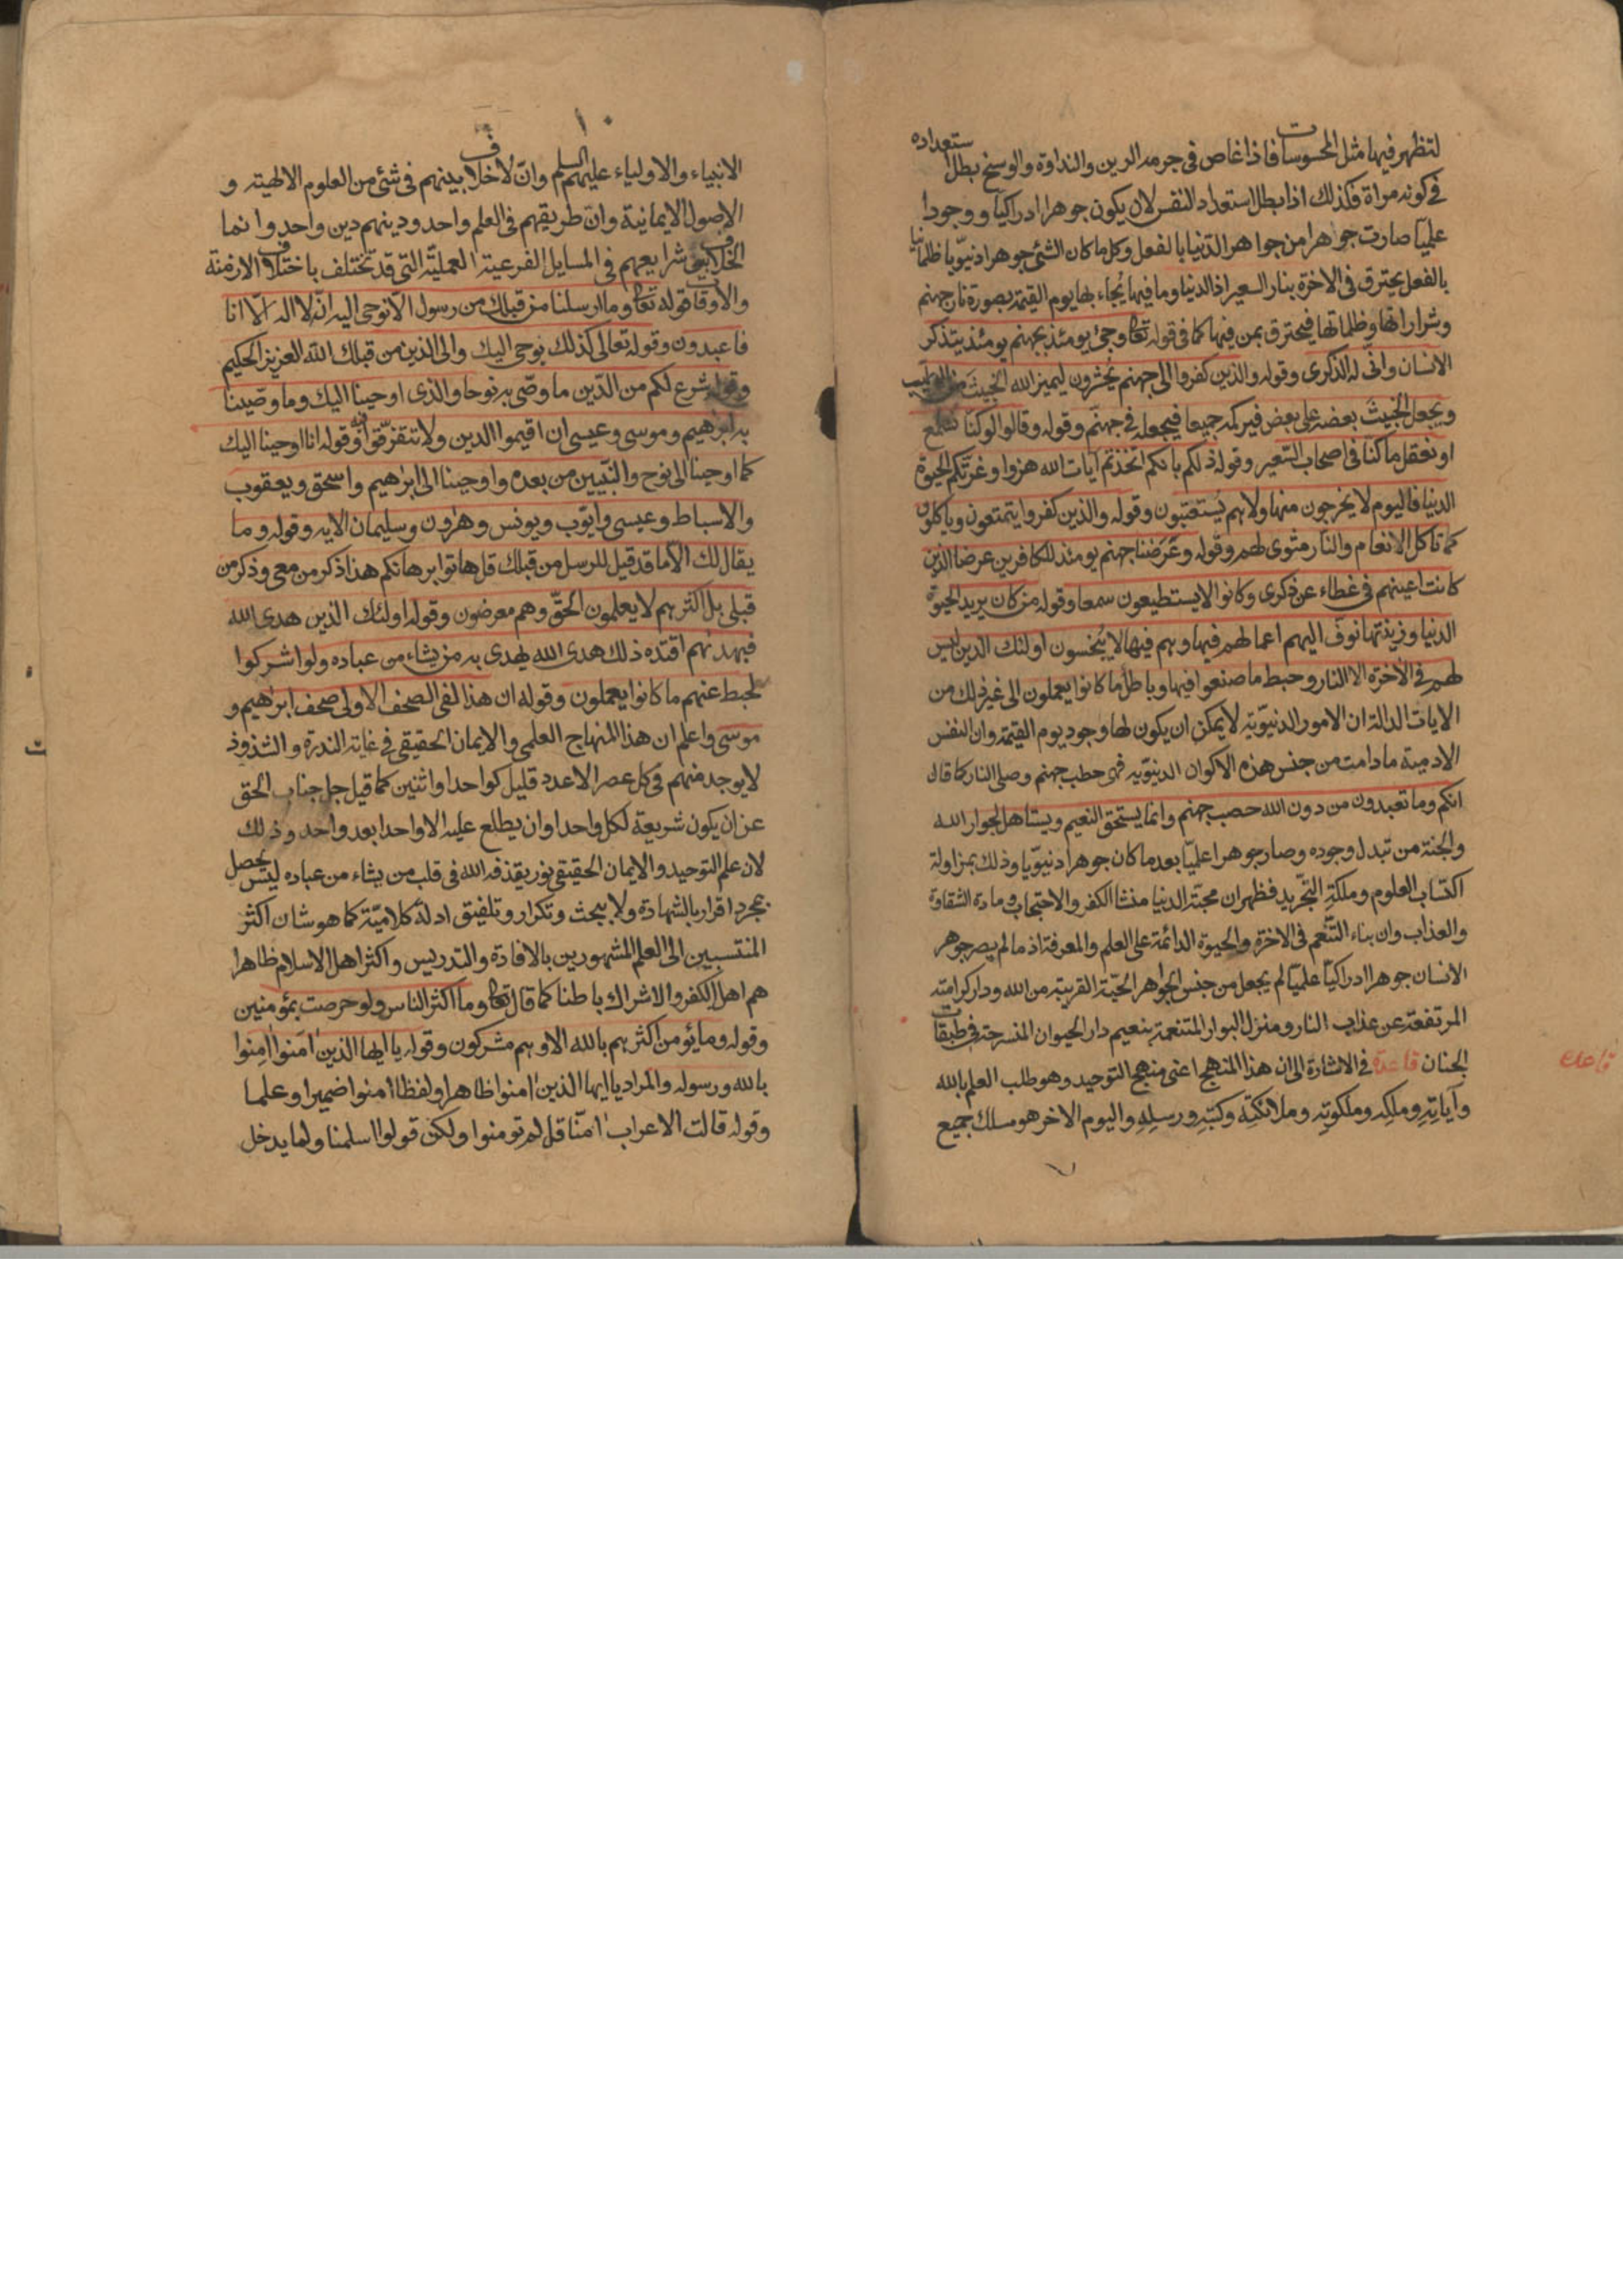 لتظهر فيها مثل المحسوسات فاذا غاص فى جرمه الرين والنداوة والوسخ بطل استعداده
فى كونه مراة فكذلك اذا بطل استعداد النفس لان يكون جوهرا ادراكيا ووجودا
علميا صارت جوهرا من جواهر الدنيا بالفعل وكل ما كان الشئ جوهرا دنيويا ظلمانيا
بالفعل يحترق فى الاخرة بنار السعير اذ الدنيا وما فيها يُجاء بها يوم القيمة بصورة نار جهنم
وشراراتها وظلماتها فيحترق بمن فيها كما فى قوله تعا وجئ يومئذ بجهنم يومئذ يتذكر
الانسان وانى له الذكرى وقوله والذين كفروا الى جهنم يحشرون ليميز الله الخبيث من الطيب
ويجعل الخبيث بعضه على بعض فيركمه جميعا فيجعله فى جهنم وقوله وقالوا لو كنا نسمع
او نعقل ما كنا فى اصحاب السعير وقوله ذلكم بانكم اتخذتم آيات الله هزوا وغرتكم الحيوة
الدنيا فاليوم لا يخرجون منها ولا هم يستعتبون وقوله والذين كفروا يتمتعون وياكلون
كما تاكل الانعام والنار مثوى لهم وقوله وعرضنا جهنم يومئذ للكافرين عرضا الذين
كانت اعينهم فى غطاء عن ذكرى وكانوا لا يستطيعون سمعا وقوله من كان يريد الحيوة
الدنيا وزينتها نوف اليهم اعمالهم فيها وهم فيها لا يبخسون اولئك الذين ليس
لهم فى الآخرة الا النار وحبط ما صنعوا فيها وباطل ما كانوا يعملون الى غير ذلك من
الايات الدالة ان الامور الدنيوية لا يمكن ان يكون لها وجود يوم القيمة وان النفس
الادمية ما دامت من جنس هذه الاكوان الدنيوية فهى حطب جهنم وصلى النار كما قال
انكم وما تعبدون من دون الله حصب جهنم وانما يستحق النعيم ويستاهل لجوار الله
والجنة من تبدل وجوده وصار جوهرا علميا بعد ما كان جوهرا دنيويا وذلك بمزاولة
اكتساب العلوم وملكة التجريد فظهر ان محبة الدنيا منشا الكفر والاحتجاب ومادة الشقاوة
والعذاب وان بناء التنعم فى الاخرة والحيوة الدائمة على العلم والمعرفة اذ ما لم يصر جوهر
الانسان جوهرا ادراكيا علميا لم يجعل من جنس الجواهر الحية القريبة من الله ودار كرامته
المرتفعة عن عذاب النار ومنزل البوار المتنعمة بنعيم دار الحيوان المنسرحة فى طبقات
الجنان قاعدة فى الاشارة الى ان هذا المنهج اعنى منهج التوحيد وهو طلب العلم بالله
وآياته وملكه وملكوته وملائكته وكتبه ورسله واليوم الاخر هو مسلك جميع
قاعدة
١٠
الانبياء والاولياء عليهم السلم وان لا خلاف بينهم فى شئ من العلوم الالهية و
الاصول الايمانية وان طريقهم فى العلم واحد ودينهم دين واحد وانما
الخلاف فى شرايعهم فى المسايل الفرعية العملية التى قد تختلف باختلاف الازمنة
والاوقات قوله تعا وما ارسلنا من قبلك من رسول الا نوحى اليه انه لا اله الا انا
فاعبدون وقوله تعالى كذلك يوحى اليك والى الذين من قبلك الله العزيز الحكيم
وقوله شرع لكم من الدين ما وصى به نوحا والذى اوحينا اليك وما وصينا
به ابرهيم وموسى وعيسى ان اقيموا الدين ولا تتفرقوا فيه وقوله انا اوحينا اليك
كما اوحينا الى نوح والنبيين من بعده واوحينا الى ابرهيم واسحق ويعقوب
والاسباط وعيسى وايوب ويونس وهرون وسليمان الايه وقوله وما
يقال لك الا ما قد قيل للرسل من قبلك قل هاتوا برهانكم هذا ذكر من معى وذكر من
قبلى بل اكثرهم لا يعلمون الحق وهم معرضون وقوله اولئك الذين هدى الله
فبهديهم اقتده ذلك هدى الله يهدى به من يشاء من عباده ولو اشركوا
لحبط عنهم ما كانوا يعملون وقوله ان هذا لفى الصحف الاولى صحف ابرهيم و
موسى واعلم ان هذا المنهاج العلمى والايمان الحقيقى فى غاية الندرة والشذوذ
لا يوجد منهم فى كل عصر الا عدد قليل كواحد او اثنين كما قيل جل جناب الحق
عن ان يكون شريعة لكل واحد او ان يطلع عليه الا واحدا بعد واحد وذلك
لان علم التوحيد والايمان الحقيقى نور يقذفه الله فى قلب من يشاء من عباده ليس يحصل
بمجرد اقرار بالشهادة ولا ببحث وتكرار وتلفيق ادلة كلامية كما هو شان اكثر
المنتسبين الى العلم المشهورين بالافادة والتدريس واكثر اهل الاسلام ظاهرا
هم اهل الكفر والاشراك باطنا كما قال تعا وما اكثر الناس ولو حرصت بمؤمنين
وقوله وما يؤمن اكثرهم بالله الا وهم مشركون وقوله يا ايها الذين امنوا امنوا
بالله ورسوله والمراد يا ايها الذين امنوا ظاهرا ولفظا امنوا ضميرا وعلما
وقوله قالت الاعراب امنا قل لم تومنوا ولكن قولوا اسلمنا ولما يدخل